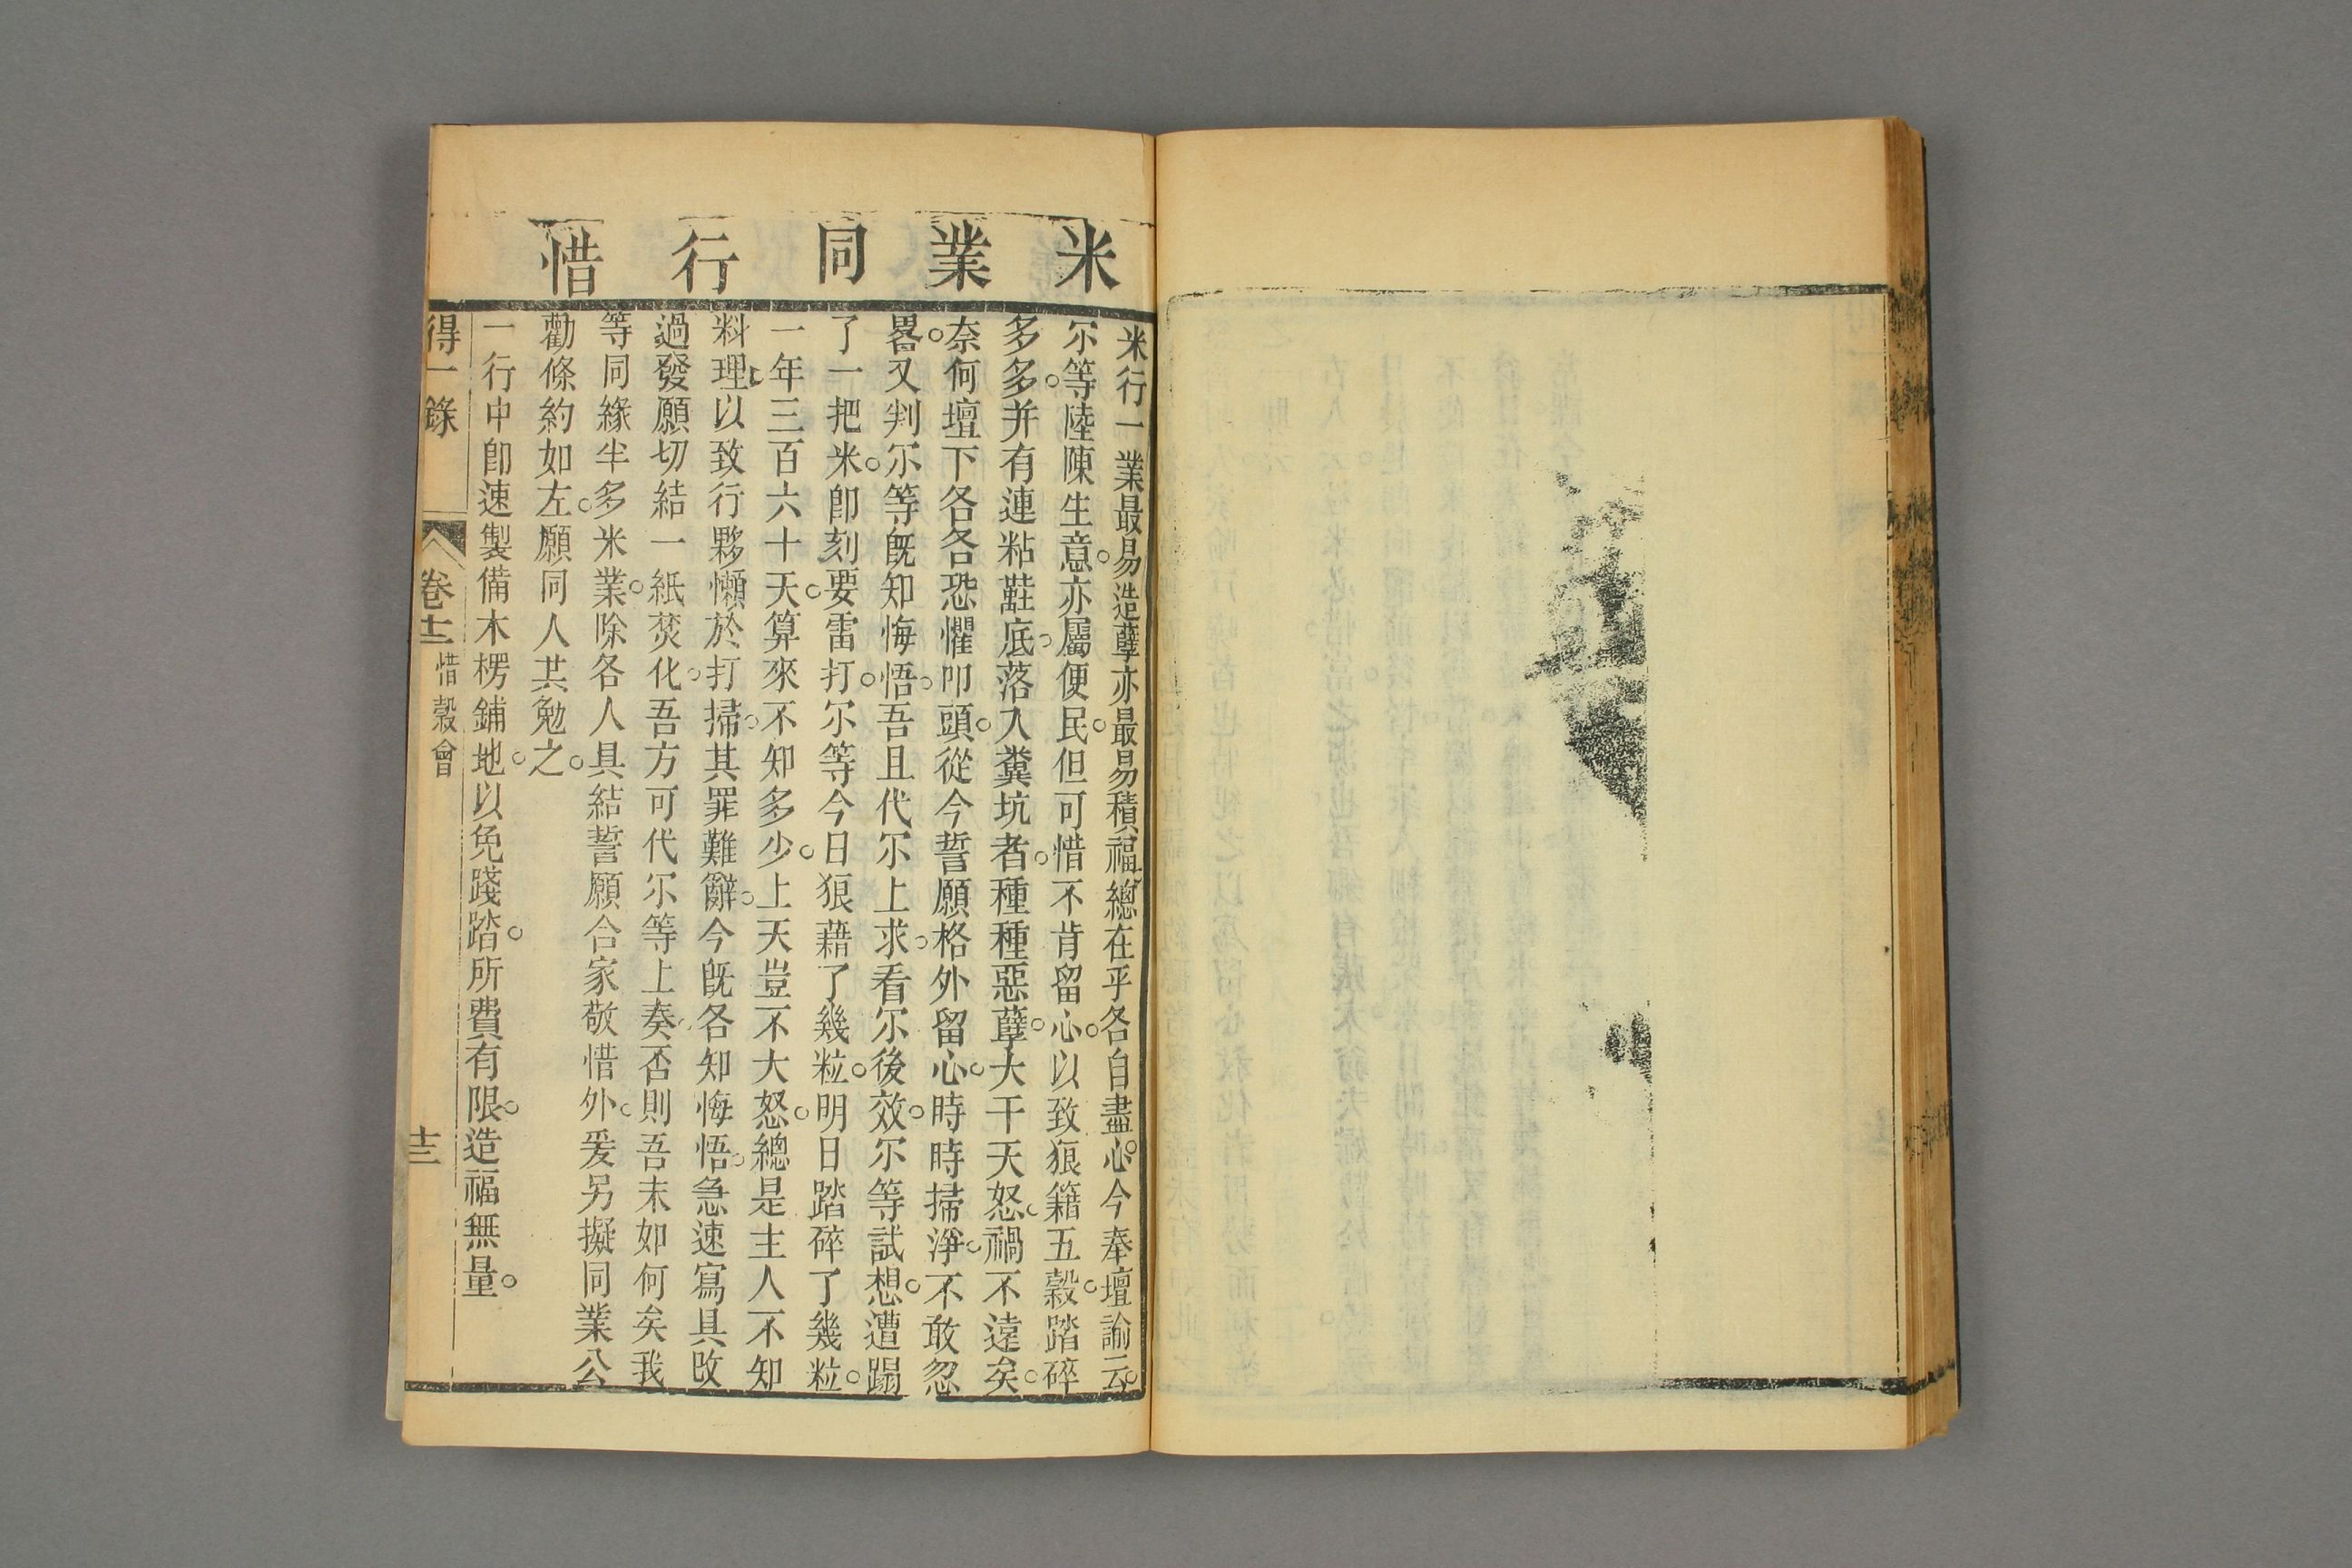 米業同行惜
米行一業最易造孽亦最易積福總在乎各自盡心。今奉壇諭云。
尔等陸陳生意。亦屬便民。但可惜不肯留心。以致狼籍五穀。踏碎
多多。并有連粘鞋底。落入糞坑者。種種惡孽。大干天怒。禍不遠矣。
奈何壇下各各恐懼叩頭。從今誓願格外留心。時時掃淨。不敢忽
畧。又判尔等旣知悔悟。吾且代尔上求。看尔後效。尔等試想。遭蹋
了一把米。卽刻要雷打。尔等今日狼藉了幾粒。明日踏碎了幾粒。
一年三百六十天。算來不知多少。上天豈不大怒。總是主人不知
料理、以致行夥懶於打掃。其罪難辭。今旣各知悔悟。急速寫具改
過發願切結一紙焚化。吾方可代尔等上奏。否則吾末如何矣我
等同緣半多米業。除各人具結誓願合家敬惜外。爰另擬同業公
勸條約如左。願同人共勉之。
一行中卽速製備木楞鋪地。以免踐踏。所費有限。造福無量。
得一錄
卷十二
惜穀會
十三